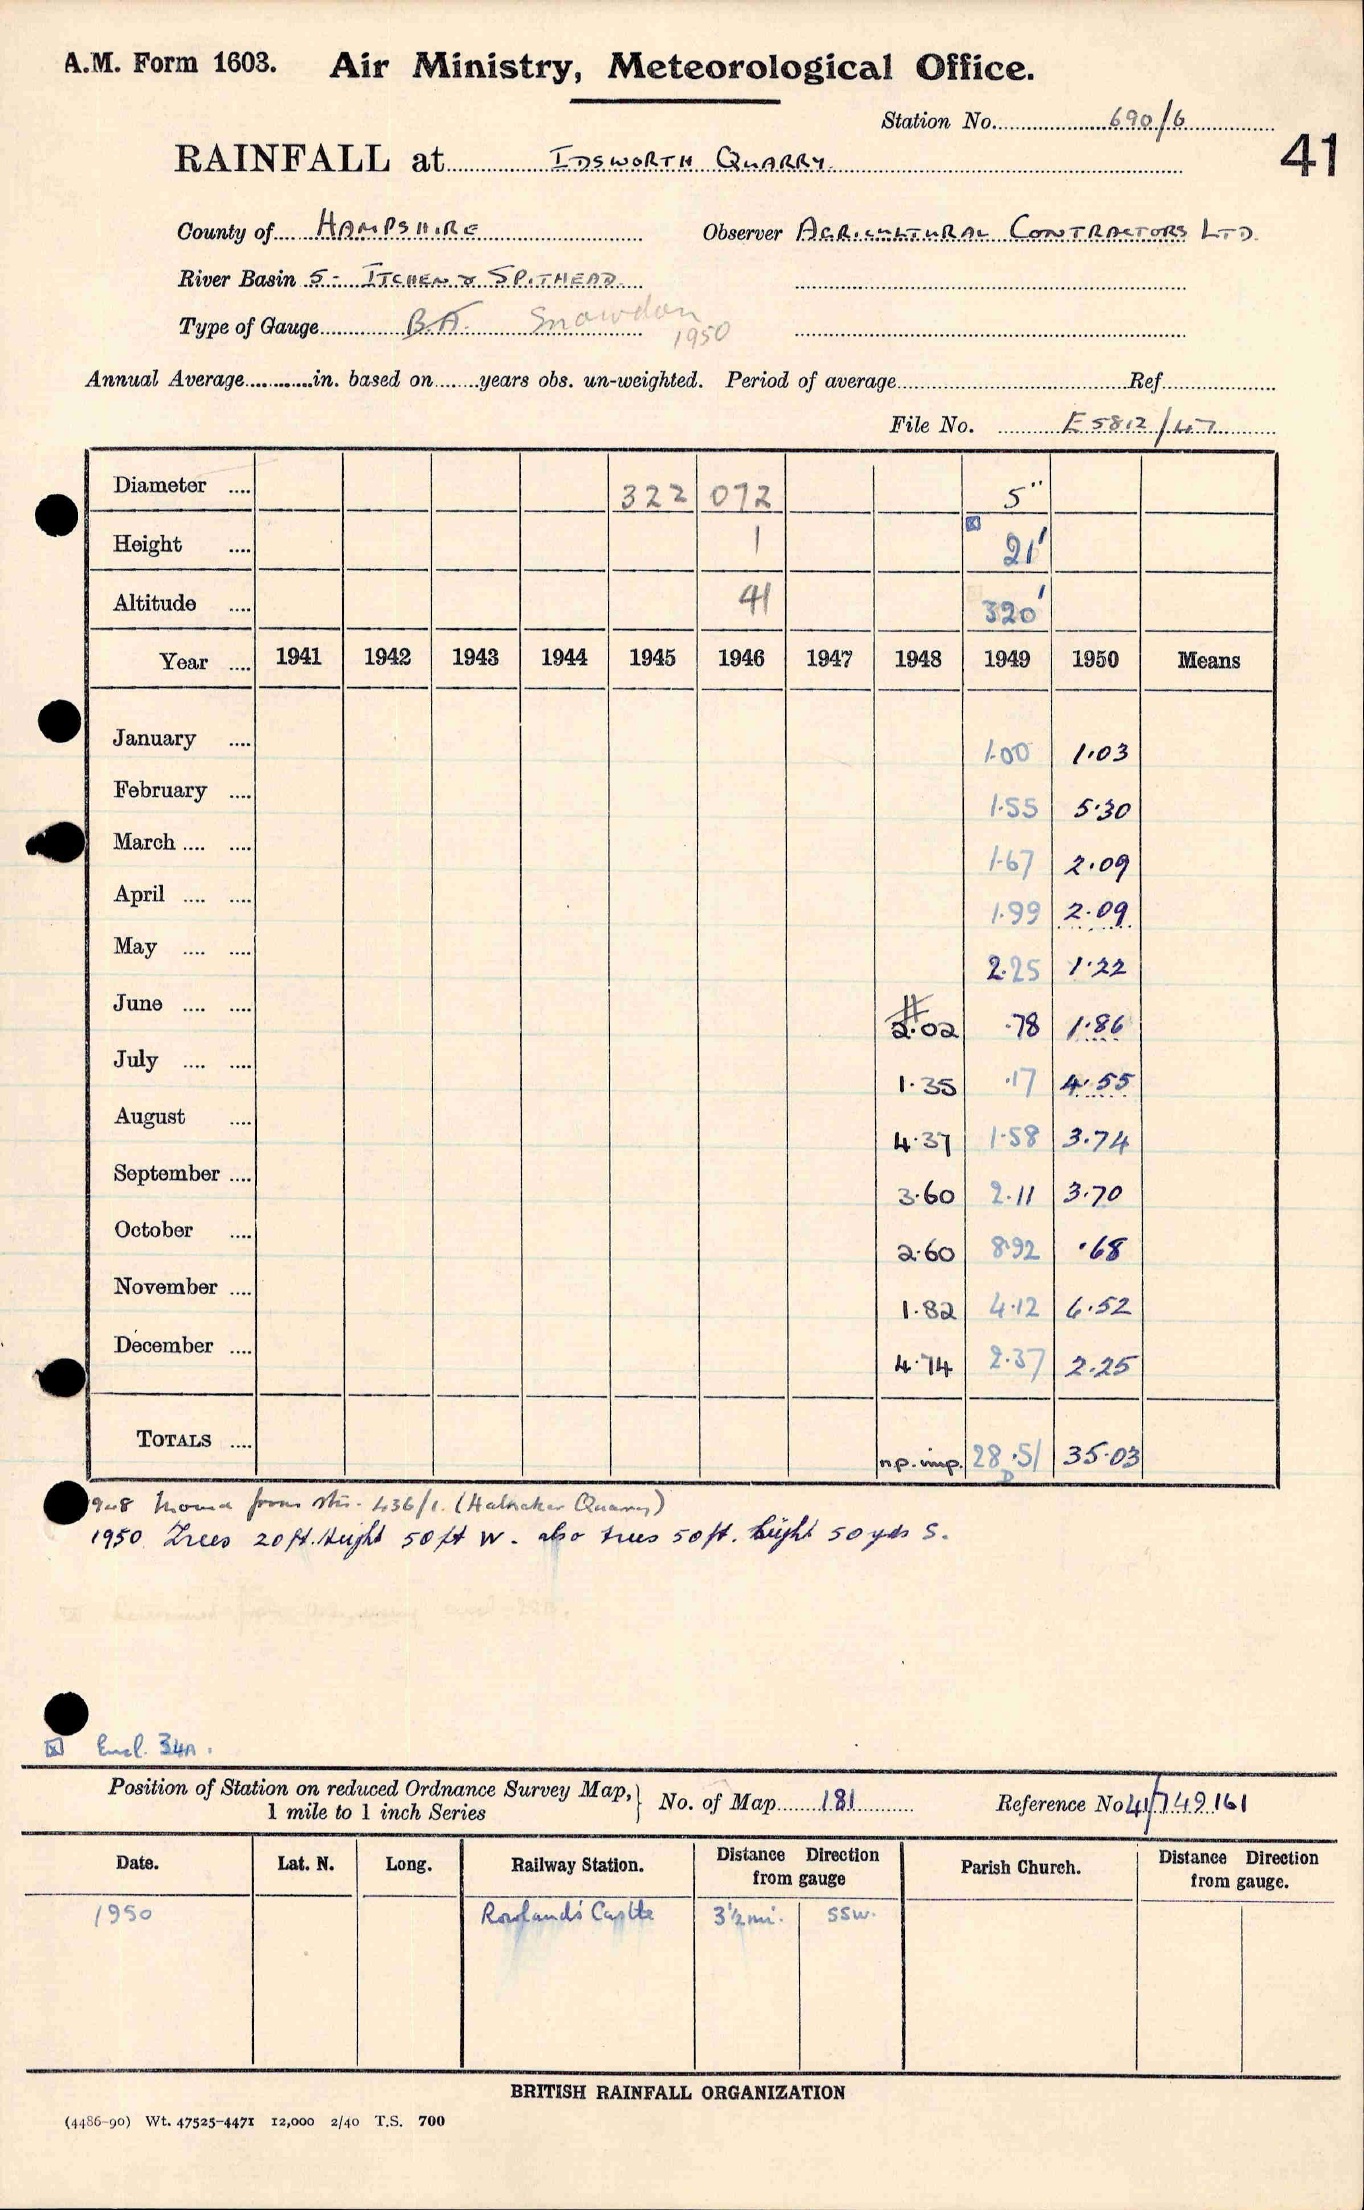 A.M. Form 1603. Air Ministry, Meteorological Office.
Station No. 690/6
41
RAINFALL at IDSWORTH QUARRY.
County of HAMPSHIRE Observer AGRICULTURAL CONTRACTORS LTD.
River Basin 5 - ITCHEN & SPITHEAD.
Type of Gauge B.A. Snowdon
1950
Annual Average in. based on years obs. un-weighted. Period of average Ref
File No. E5812/47
Diameter .... 322 072 5"
Height .... 1 21'
Altitude .... 41 320'
Year .... 1941 1942 1943 1944 1945 1946 1947 1948 1949 1950 Means
January .... 1.00 1.03
February .... 1.55 5.30
March .... .... 1.67 2.09
April .... .... 1.99 2.09
May .... .... 2.25 1.22
June .... .... # 2.02 .78 1.86
July .... .... 1.35 .17 4.55
August .... 4.37 1.58 3.74
September .... 3.60 2.11 3.70
October .... 2.60 8.92 .68
November .... 1.82 4.12 6.52
December .... 4.74 2.37 2.25
TOTALS .... n.p. imp. 28.51 35.03
D
948 Moved from stn. 436/1. (Halnaker Quarry)
1950 Trees 20ft. height 50ft W. also trees 50ft. height 50yds S.
Encl. 34A.
Position of Station on reduced Ordnance Survey Map, 1 mile to 1 inch Series } No. of Map 181 Reference No 41/749161
Date. Lat. N. Long. Railway Station. Distance Direction from gauge Parish Church. Distance Direction from gauge.
1950 Rowland's Castle 3½ mi. SSW.
BRITISH RAINFALL ORGANIZATION
(4486-90) Wt. 47525-4471 12,000 2/40 T.S. 700